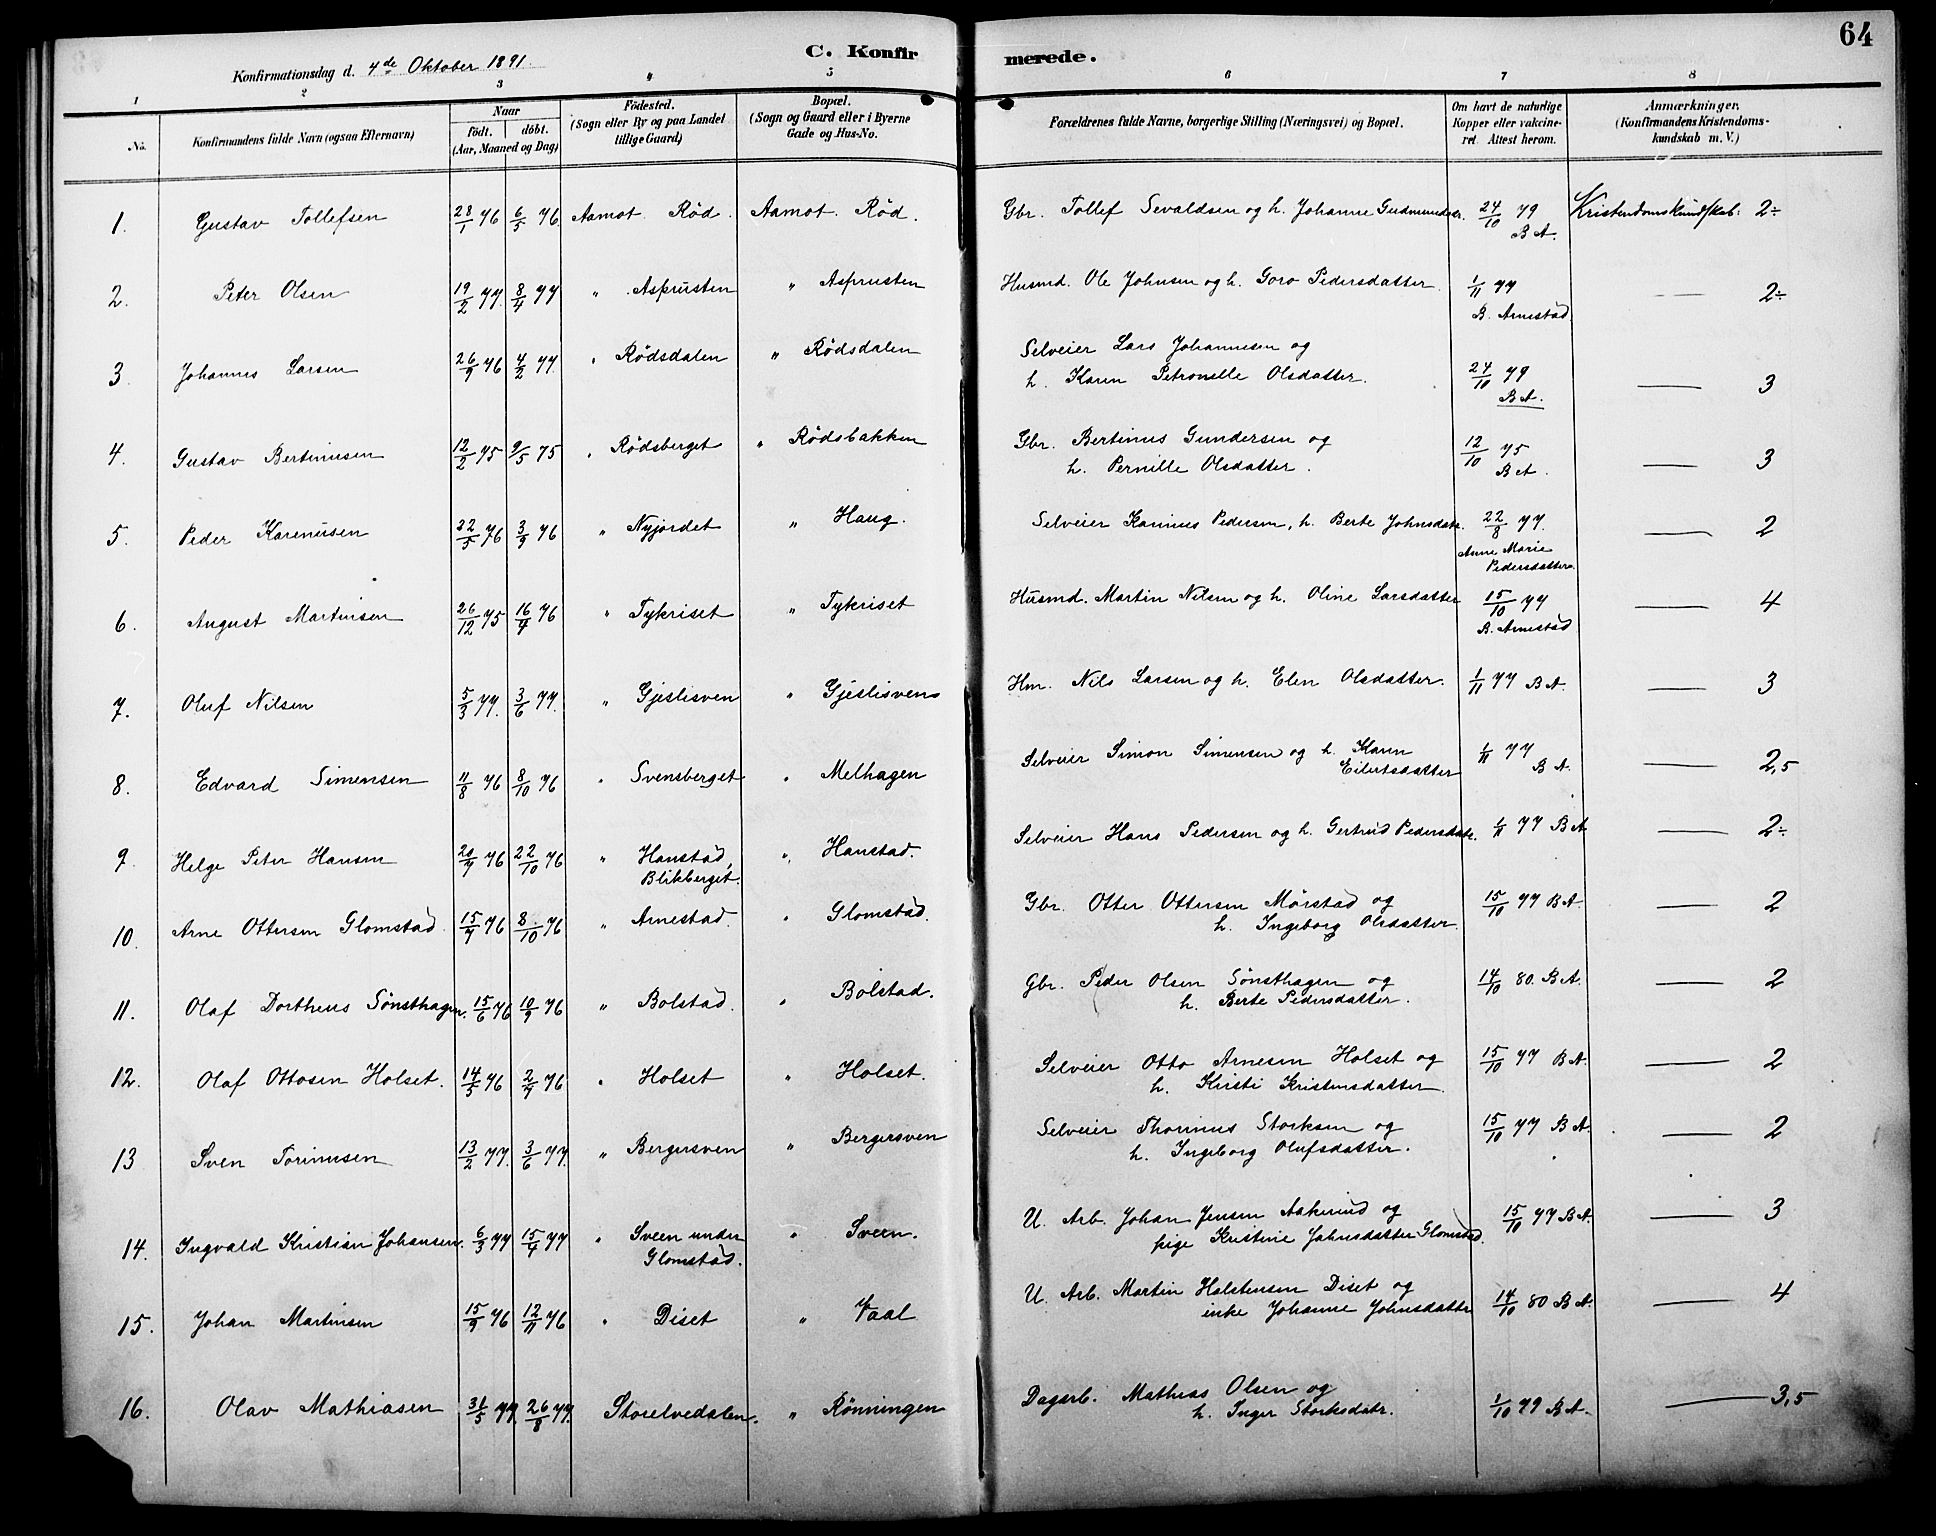 64
C. Konfirmerede.
Konfirmationsdag d. 4de Oktober 1891
1 2 3 4 5 6 7 8
No. Konfirmandens fulde Navn (ogsaa Efternavn) Naar født. døbt. (Aar, Maaned og Dag) Fødested. (Sogn eller By og paa Landet tillige Gaard) Bopæl. (Sogn og Gaard eller i Byerne Gade og Hus-No. Forældrenes fulde Navne, borgerlige Stilling (Næringsvei) og Bopæl. Om havt de naturlige Kopper eller vakcineret. Attest herom. Anmærkninger. (Konfirmandens Kristendomskundskab m. V.)
1. Gustav Tollefsen 28/1 76 6/5 76 Aamot Rød. Aamot Rød. Gbr. Tollef Sevaldsen og h. Johanne Gudmundsdr. 24/10 79 B A. Kristendomskundskab: 2÷
2. Peter Olsen 19/2 77. 8/4 77 " Asprusten " Asprusten Husmd. Ole Johnsen og h. Goro Pedersdatter 1/11 77 B. Arnestad — 2÷
3. Johannes Larsen 26/9 76 4/2 77. " Rødsdalen " Rødsdalen Selveier Lars Johannesen og
h. Karen Petronille Olsdatter. 24/10 79 B A. — 3
4. Gustav Bertinusen 12/2 75 9/5 75 " Rødsberget " Rødsbakken Gbr. Bertinus Gundersen og
h. Pernille Olsdatter. 12/10 75 B A. — 3
5. Peder Karenusen 22/5 76 3/9 76 " Nyjordet " Haug. Selveier Karinus Pedersen, h. Berte Johnsdatr. 22/8 77. Anne Marie Pedersdatter. — 2
6. August Martinsen 26/12 75 16/4 76 " Tykriset " Tykriset Husmd. Martin Nilsen og h. Oline Larsdatter 15/10 77 B. Arnestad — 4
7. Oluf Nilsen 5/3 77. 3/6 77. " Gjeslisven " Gjeslisven Hm. Nils Larsen og h. Elen Olsdatter. 1/11 77 B A. — 3
8. Edvard Simensen 11/8 76 8/10 76 " Svensberget " Melhagen Selveier Simon Simensen og h. Karen
Eilertsdatter 1/11 77 B A. — 2,5
9. Helge Peter Hansen 20/7 76 22/10 76 " Hanstad, Blikberget. " Hanstad. Selveier Hans Pedersen og h. Gertrud Pedersdatr. 1/11 77 B A — 2÷
10. Arne Ottersen Glomstad 15/7 76 8/10 76 " Arnestad. " Glomstad. Gbr. Otter Ottersen Mørstad og
h. Ingeborg Olsdatter. 15/10 77 B A — 2
11. Olaf Dortheus Sønsthagen. 15/6 76 10/9 76 " Bolstad. " Bolstad. Gbr. Peder Olsen Sønsthagen og
h. Berte Pedersdatter. 14/10 80. B A. — 2
12. Olaf Ottosen Holset. 14/5 76 2/7 76 " Holset " Holset. Selveier Otto Arnesen Holset og
h. Kirsti Kristensdatter 15/10 77 B A. — 2
13 Sven Torinusen 13/2 77. 3/6 77. " Bergersven " Bergersven Selveier Thorinus Storksen og
h. Ingeborg Olufsdatter. 15/10 77 B A. — 2
14. Ingvald Kristian Johansen. 6/3 77 15/4 77 " Sveen under Glomstad. " Sveen. U. Arb. Johan Jensen Aakerud og
pige Kristine Johnsdatter Glomstad. 15/10 77 B A. — 3
15. Johan Martinsen 15/9 76 12/11 76 " Diset " Vaal U. Arb. Martin Halstensen Diset og
enke Johanne Johnsdatter 14/10 80 B A. — 4
16. Olav Mathiasen 31/5 77 26/8 77. Storelvedalen. " Rønningen Dagarb. Mathias Olsen og
h. Inger Storksdatr. 1/10 79 B A. — 3,5